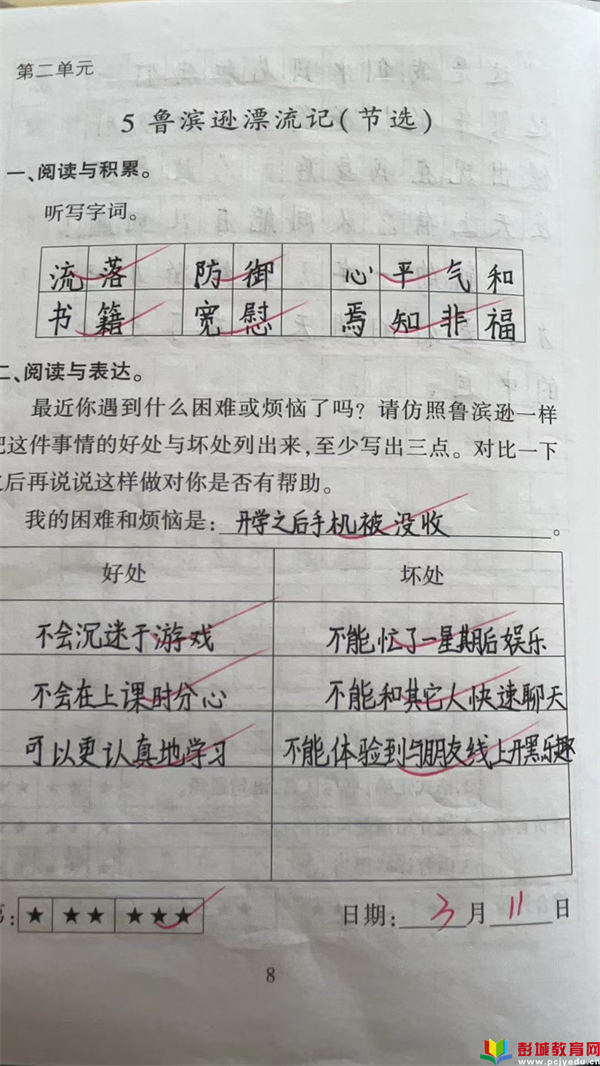 第二单元
5 鲁滨逊漂流记(节选)
一、阅读与积累。
听写字词。
流落 防御 心平气和
书籍 宽慰 焉知非福
二、阅读与表达。
最近你遇到什么困难或烦恼了吗？请仿照鲁滨逊一样
把这件事情的好处与坏处列出来，至少写出三点。对比一下
之后再说说这样做对你是否有帮助。
我的困难和烦恼是：开学之后手机被没收。
好处 坏处
不会沉迷于游戏 不能忙了一星期后娱乐
不会在上课时分心 不能和其它人快速聊天
可以更认真地学习 不能体验到与朋友线上开黑乐趣
：★ ★★ ★★★ 日期：3月11日
8
彭城教育网
www.pcjyedu.cn